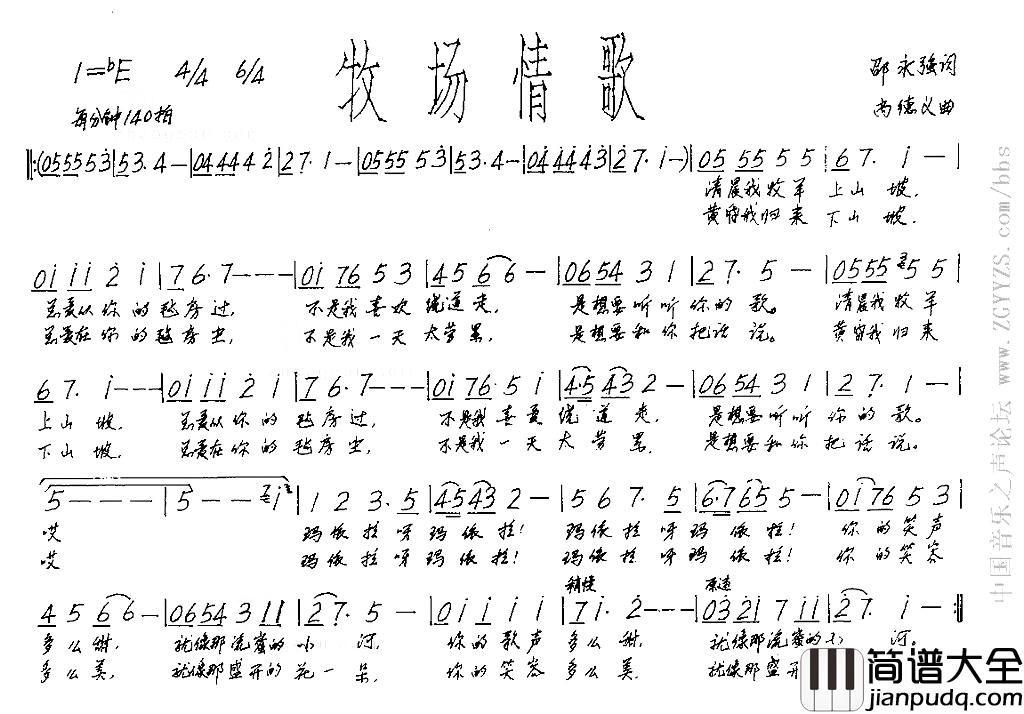 牧场情歌
1=♭E 4/4 6/4
每分钟140拍
邵永强词
尚德义曲
‖:(055553|53.4—|044442|27.1—|055553|53.4—|044443|27.1—)|05 5555|67.1—|
清晨我牧羊 上山坡,
黄昏我归来 下山坡.
01 11 2 1|76.7———|01 76 5 3|45 66—|0654 3 1|27.5—|0555 5 5|
总要从你的毡房过, 不是我喜欢绕道走, 是想要听听你的歌。 清晨我牧羊
总要在你的毡房坐, 不是我一天太劳累, 是想要和你把话说。 黄昏我归来
67.1———|01 11 2 1|76.7———|01 76.5 1|4.5 432—|0654 3 1|27.1—|
上山坡. 总要从你的毡房过, 不是我喜爱绕道走, 是想要听听你的歌。
下山坡. 总要在你的毡房坐, 不是我一天太劳累, 是想要和你把话说。
5————|5———1|1 2 3.5|45432—|5 6 7.5|6.7655—|01 765 3|
哎 玛依拉呀玛依拉! 玛依拉呀玛依拉! 你的笑声
哎 玛依拉呀玛依拉! 玛依拉呀玛依拉! 你的笑容
稍慢 原速
45 66—|0654 3 11|27.5—|01 1 1 1|71.2———|0321 7 11|27.1—:‖
多么甜, 就像那流蜜的小河, 你的歌声多么甜, 就像那流蜜的小河。
多么美, 就像那盛开的花一朵, 你的笑容多么美, 就像那盛开
中国音乐之声论坛 www.ZGYYZS.com/bbs
简谱大全
jianpudq.com